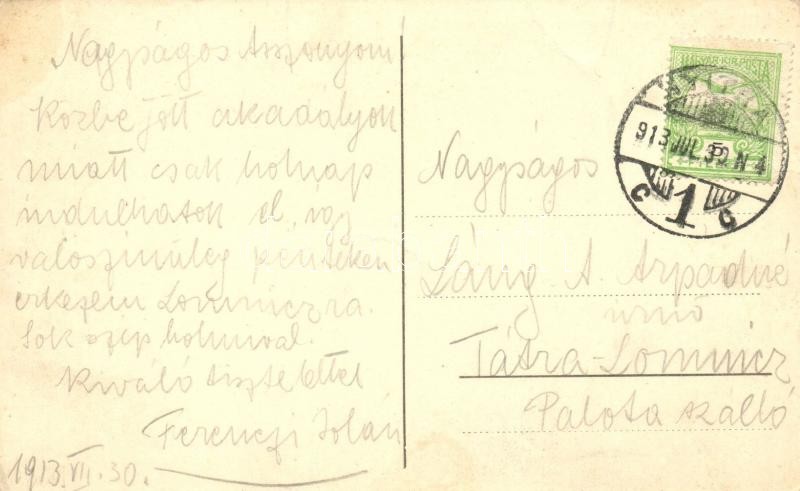 Nagyságos Asszonyom
Közbe jött akadályok
miatt csak holnap
indulhatok el, így
valoszinüleg pénteken
érkezem Lomniczra.
Sok szép holmival.
Kiváló tisztelettel
Ferenczi Jolán
1913. VII. 30.
MAGYAR KIR. POSTA
913 JUL. 30. N 4
C 1 C
Nagyságos
Láng A. Arpádné
urnő
Tátra-Lomnicz
Palota szálló